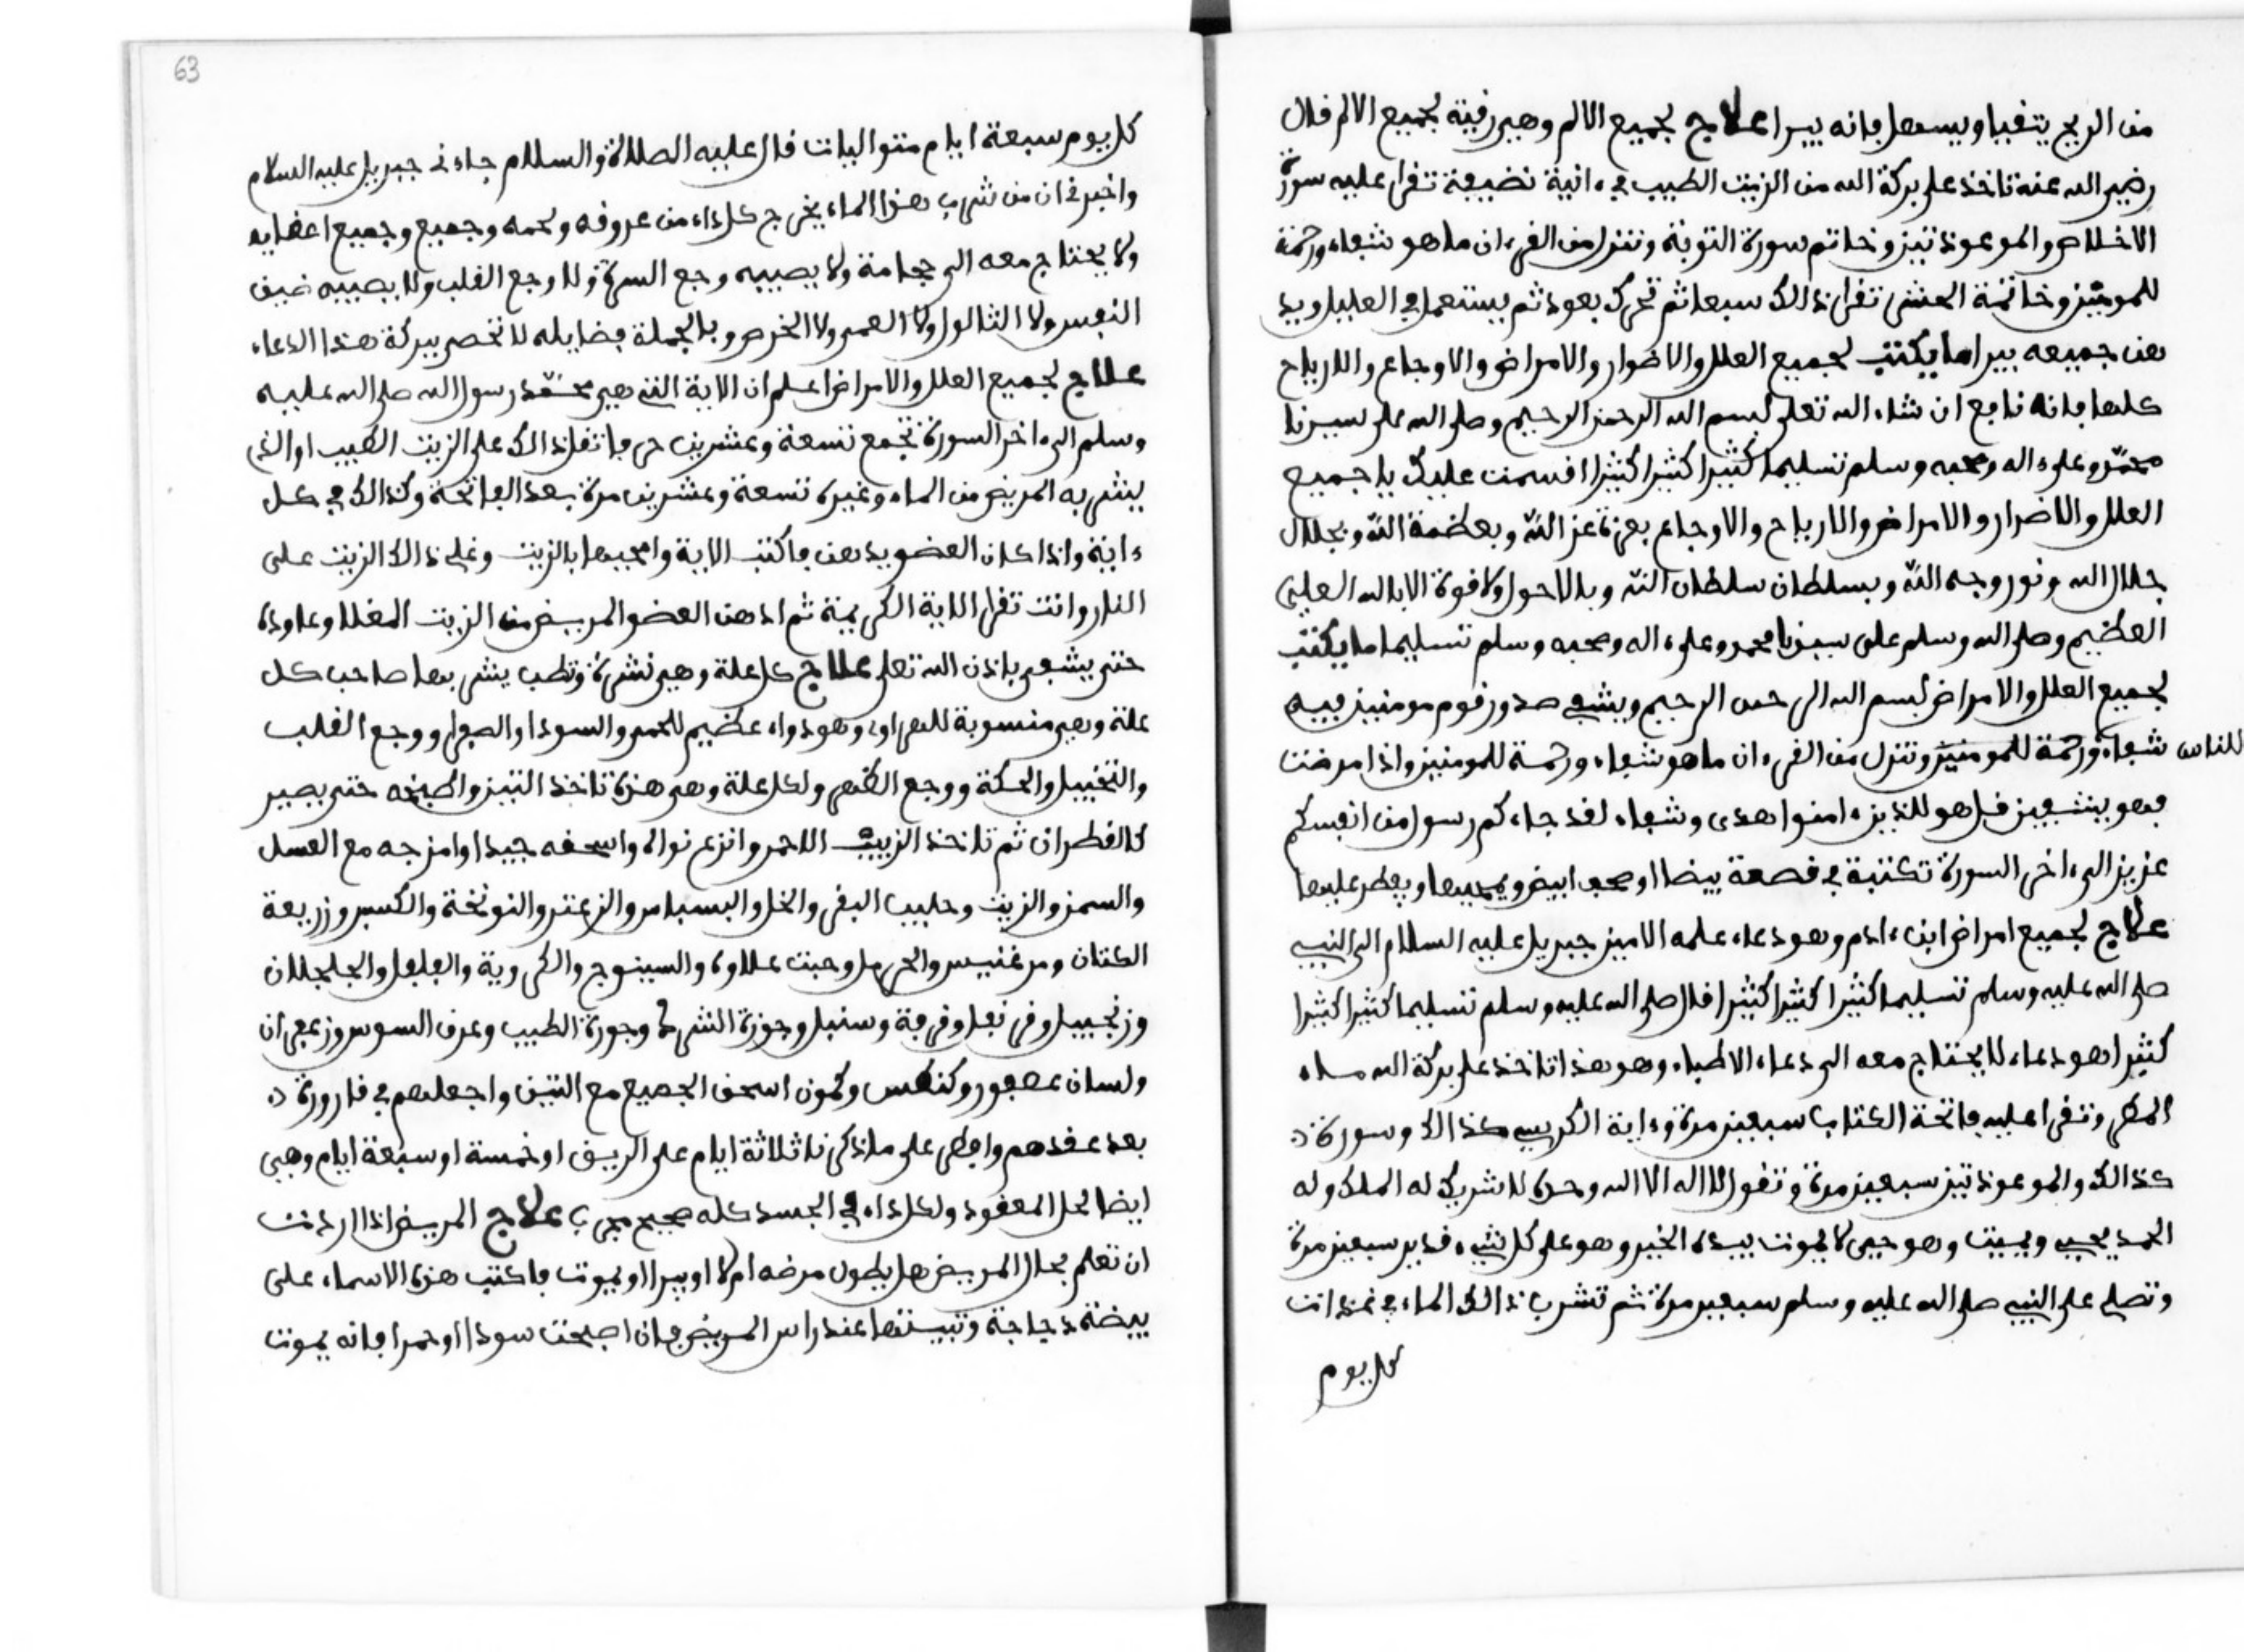 من الريح يتفيا ويسعل فانه يبرا علاج لجميع الالم وهي رقية لجميع الالم قال
رضي الله عنه تاخذ على بركة الله من الزيت الطيب في ءانية نضيفة تقرا عليه سورة
الاخلاص والموعوذتين وخاتم سورة التوبة وننزل من القرءان ما هو شفاء ورحمة
للمومنين وخاتمة الحشر تقرا ذالك سبعا ثم تحرك بعود ثم يستعمل في العليل ويد
هن جميعه يبرا ما يكتب لجميع العلل والاضرار والامراض والاوجاع والارياح
كلها فانه نافع ان شاء الله تعلى بسم الله الرحمن الرحيم وصلى الله على سيدنا
محمد وعلى ءاله وصحبه وسلم تسليما كثيرا كثيرا كثيرا اقسمت عليك يا جميع
العلل والاضرار والامراض والارياح والاوجاع بعزة عز الله وبعظمة الله وبجلال
جلال الله ونور وجه الله وبسلطان سلطان الله وبلا حول ولا قوة الا بالله العلي
العظيم وصلى الله وسلم على سيدنا محمد وعلى ءاله وصحبه وسلم تسليما ما يكتب
لجميع العلل والامراض بسم الله الرحمن الرحيم ويشف صدور قوم مومنين فيه
للناس شفاء ورحمة للمومنين وننزل من القرءان ما هو شفاء ورحمة للمومنين واذا مرضت
فهو يشفين قل هو للذين ءامنوا هدى وشفاء لقد جاءكم رسول من انفسكم
عزيز الى ءاخر السورة تكتبه في قصعة بيضا او صحف ابيض ويمحيها ويفطر عليها
علاج لجميع امراض ابن ءادم وهو دعاء علمه الامين جبريل عليه السلام الى النبي
صلى الله عليه وسلم تسليما كثيرا كثيرا كثيرا قال صلى الله عليه وسلم تسليما كثيرا كثيرا
كثيرا هو دعاء لا يحتاج معه الى دعاء الاطباء وهو هذا تاخذ على بركة الله ماء
المطر وتقرا عليه فاتحة الكتاب سبعين مرة وءاية الكرسي كذالك وسورة
كذالك والموعوذتين سبعين مرة وتقول لا اله الا الله وحده لا شريك له الملك وله
الحمد يحيي ويميت وهو حيى لا يموت بيده الخير وهو على كل شيء قدير سبعين مرة
وتصلي على النبي صلى الله عليه وسلم سبعين مرة ثم تشرب ذالك الماء في غذ انت
كل يوم
63
كل يوم سبعة ايام متواليات قال عليه الصلاة والسلام جاءني جبريل عليه السلام
واخبرني ان من شرب هذا الماء يخرج كل داء من عروقه ولحمه وجميع وجميع اعضايه
ولا يحتاج معه الى حجامة ولا يصيبه وجع السرة ولا وجع القلب ولا يصيبه ضيف
النفس ولا الثالول ولا العمى ولا الخرص وبالجملة فضايله لا تحصر ببركة هذا الدعاء
علاج لجميع العلل والامراض اعلم ان الاية التي هي محمد رسول الله صلى الله عليه
وسلم الى ءاخر السورة تجمع تسعة وعشرين حرفا تقرا ذالك على الزيت الطيب او الذي
ينشر به المريض من الماء وغيره تسعة وعشرين مرة بعد الفاتحة وكذالك في كل
ءانية واذا كان العضو يدهن فاكتب الاية وامحيها بالزيت وغلي ذالك الزيت على
النار وانت تقرا الاية الكريمة ثم ادهن العضو المريض من الزيت المغلا وعاوده
حتى يشفى باذن الله تعلى علاج كل علة وهي نشرة وتطب ينشر بها صاحب كل
علة وهي منسوبة للهراوي وهو دواء عظيم للحمى والسودا والصفرا ووجع القلب
والتخييل والحكة ووجع الظهر ولكل علة وهي هذه تاخذ التين واطبخه حتى يصير
كالقطران ثم تاخذ الزبيب الاحمر وانزع نواله واسحقه جيدا وامزجه مع العسل
والسمن والزيت وحليب البقر والخل والبسباس والزعتر والنونخة والكسبر وزريعة
الكتان ومرغنيس والحرمل وحبت علاوة والسينوج والكروية والفلفل والجلجلان
وزنجبيل وقرنفل وقرفة وسنبل وجوزة الشرك وجوزة الطيب وعرق السوس وزعفران
ولسان عصفور وكنطس وكمون اسحق الجميع مع التين واجعلهم في قارورة
بعد عقدهم وافطر على ما ذكرنا ثلاثة ايام على الريق او خمسة او سبعة ايام وهي
ايضا لحل المعقود ولكل داء في الجسد كله صحيح مجرب علاج المريض اذا اردت
ان تعلم بحال المريض هل يطول مرضه ام لا او يبرا او يموت فاكتب هذه الاسماء على
بيضة دجاجة وتبيتها عند راس المريض فان اصبحت سودا او حمرا فانه يموت